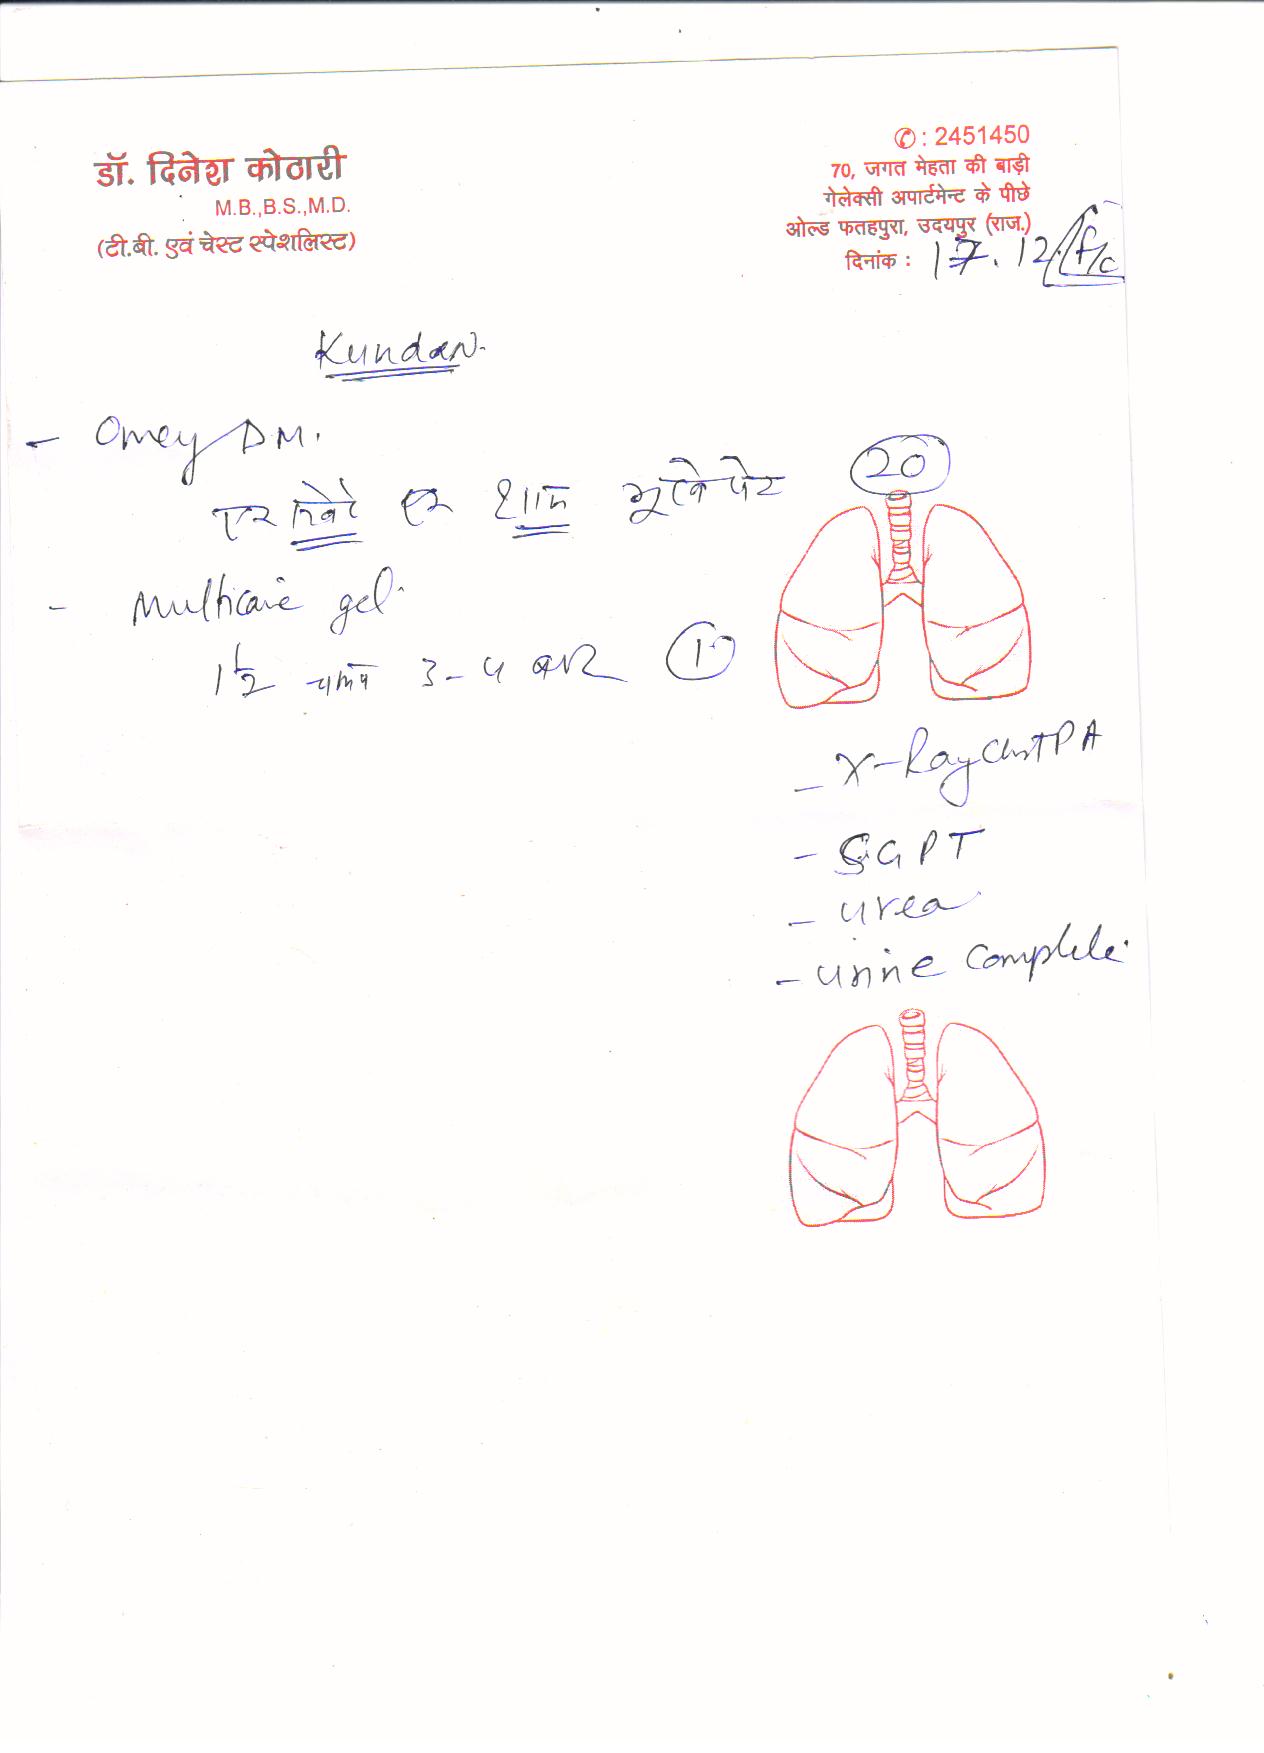 डॉ. दिनेश कोठारी
M.B.,B.S.,M.D.
(टी.बी. एवं चेस्ट स्पेशलिस्ट)
✆ : 2451450
70, जगत मेहता की बाड़ी
गेलेक्सी अपार्टमेन्ट के पीछे
ओल्ड फतहपुरा, उदयपुर (राज.)
दिनांक : 17.12 f/c
Kundan.
- Omey DM.
एक सवेरे एक शाम भूखे पेट 20
- Multicare gel.
1 1/2 चम्मच 3-4 बार 1
- X-Ray Chest PA
- SGPT
- urea
- urine complete.